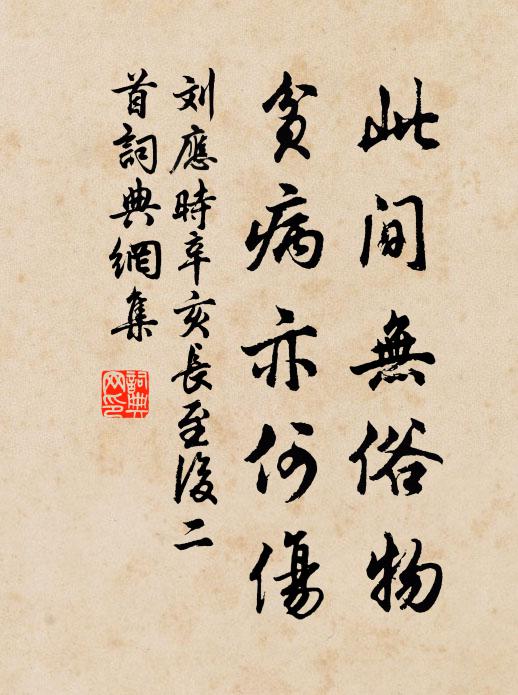 此間無俗物
貧病亦何傷
刘應時辛亥長至後二
首詞典網集
詞典
网印